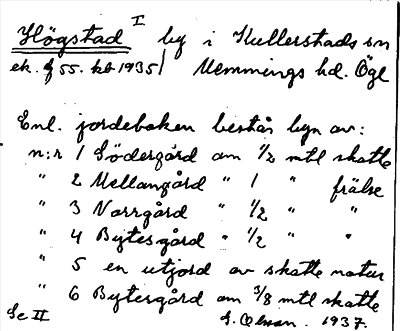 Högstad I by i Kullerstads sn
ek. bl 55. kb 1935 Memmings hd. Ögl
Enl. jordeboken består byn av:
n:r 1 Södergård om 1/2 mtl skatte
" 2 Mellangård " 1 " frälse
" 3 Norrgård " 1/2 " "
" 4 Bytesgård " 1/2 " "
" 5 en utjord av skatte natur
" 6 Bytesgård om 3/8 mtl skatte
Se II
G. Olsson. 1937.